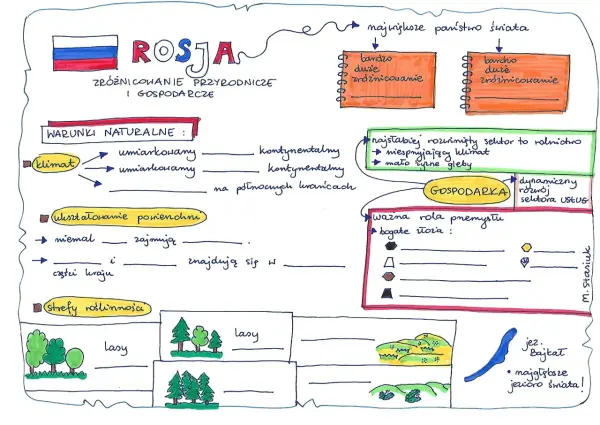 ROSJA
ZRÓŻNICOWANIE PRZYRODNICZE
I GOSPODARCZE
największe państwo świata
bardzo
duże
zróżnicowanie
bardzo
duże
zróżnicowanie
WARUNKI NATURALNE :
klimat
umiarkowany kontynentalny
umiarkowany kontynentalny
na północnych krańcach
ukształtowanie powierzchni
niemal zajmują .
i znajdują się w
części kraju
strefy roślinności
lasy
lasy
najsłabiej rozwinięty sektor to rolnictwo
niesprzyjający klimat
mało żyzne gleby
GOSPODARKA
dynamiczny
rozwój
sektora USŁUG
ważna rola przemysłu
bogate złoża :
M. Stasiuk
jez.
Bajkał
• najgłębsze
jezioro świata!